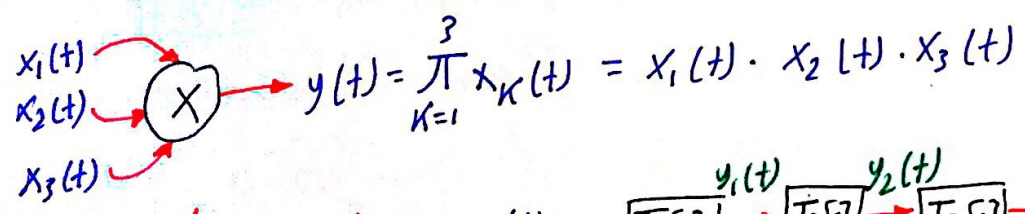 x₁(t)
x₂(t)
x₃(t)
X
y(t) = ∏ₖ₌₁³ xₖ(t) = x₁(t) · x₂(t) · x₃(t)
y₁(t) y₂(t)